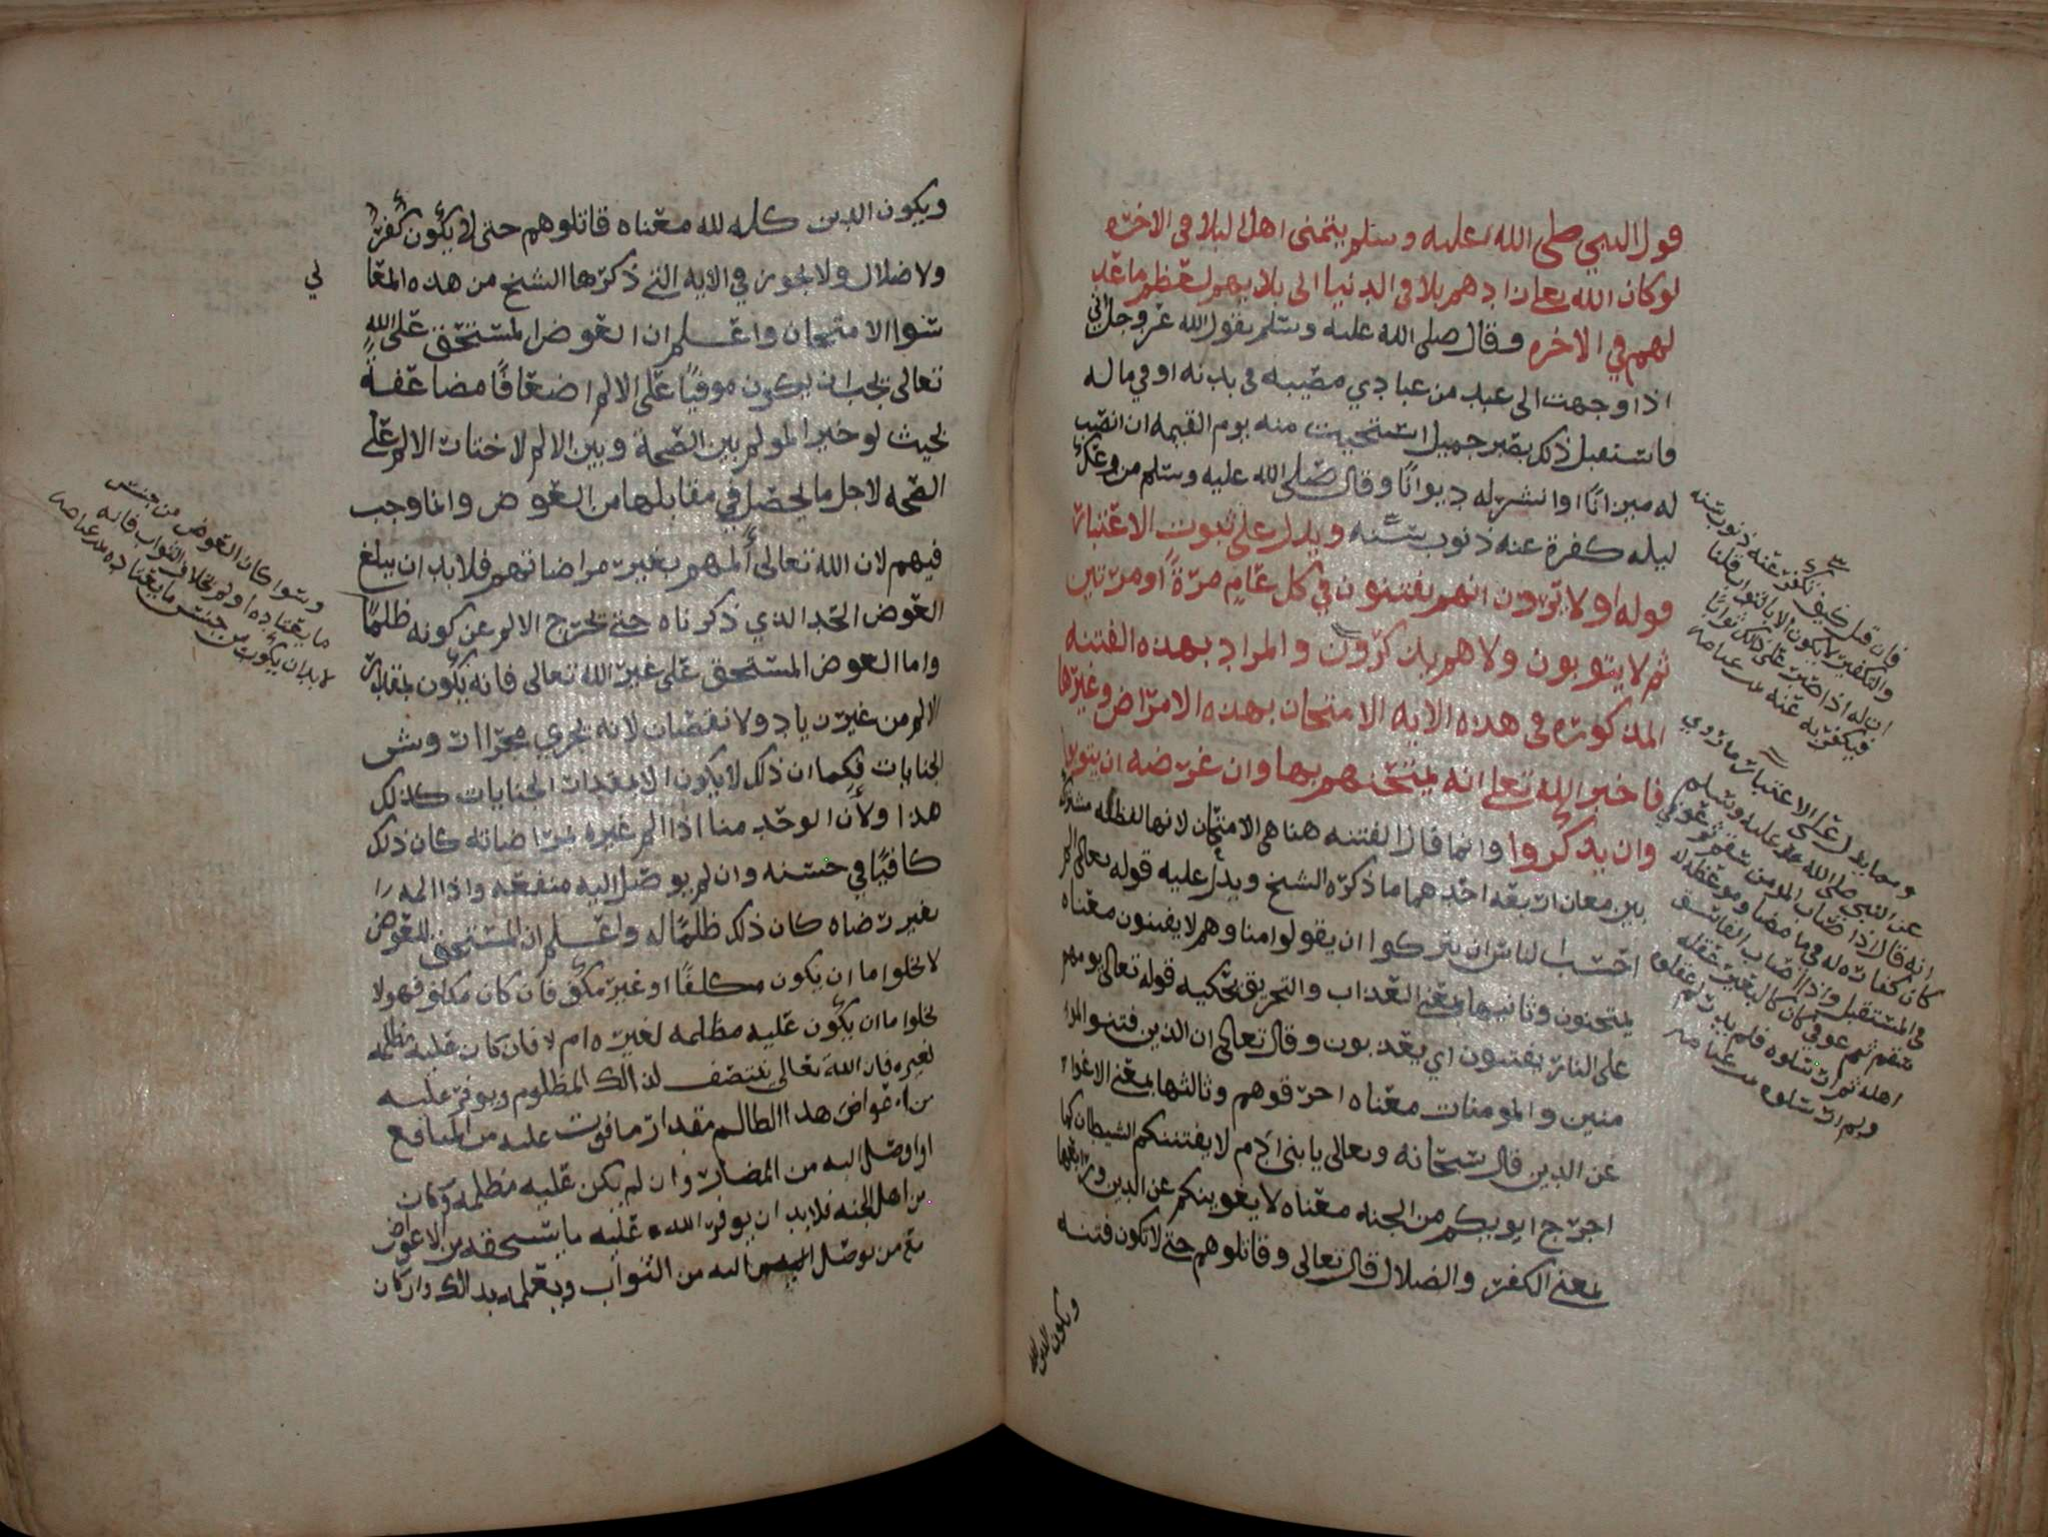 قول النبي صلى الله عليه وسلم يتمنى اهل البلا في الاخره
لو كان الله تعالى زادهم بلا في الدنيا الى بلايهم لعظم ما عد
لهم في الاخره وقال صلى الله عليه وسلم يقول الله عز وجل اني
اذا وجهت الى عبد من عبادي مصيبه في بدنه او في ماله
فاستقبل ذلك بصبر جميل استحييت منه يوم القيمه ان انصب
له ميزانًا او انشر له ديوانًا وقال صلى الله عليه وسلم من وعك
ليله كفرة عنه ذنوب سنه ويدل على ثبوت الاعتبار
قوله اولا يرون انهم يفتنون في كل عامٍ مرةً او مرتين
ثم لا يتوبون ولا هم يذكرون والمراد بهذه الفتنه
المذكوره في هذه الايه الامتحان بهذه الامراض وغيرها
فاخبر الله تعلى انه يمتحنهم بها وان غرضه ان يتوبوا
وان يذكروا وانما قال الفتنه هنا هي الامتحان لانها لفظه مشتركه
بين معان اربعه احدهما ما ذكره الشيخ ويدل عليه قوله تعالى الم
احسب الناس ان يتركوا ان يقولوا امنا وهم لا يفتنون معناه
يمتحنون وثانيها بمعنى العذاب والتحريق تحكيه قوله تعالى يومهم
على النار يفتنون اي يعذبون وقال تعالى ان الذين فتنوا المو
منين والمومنات معناه احرقوهم وثالثها بمعنى الاغوا
عن الدين قال سبحانه وتعالى يا بني ادم لا يفتننكم الشيطان كما
اخرج ابويكم من الجنه معناه لا يغوينكم عن الدين ورابعها
بمعنى الكفر والضلال قال تعالى وقاتلوهم حتى لا تكون فتنه
ويكون الدين لله
فان قيل كيف تكفر عنه ذنوب سنه
والتكفير لا يكون الا بالثواب قلنا
ان له اذا صبر على ذلك ثوابًا
فيكفر به عنه
ومما يدل على الاعتبار ما روي
عن النبي صلى الله عليه وسلم
انه قال اذا اصاب المومن سقم ثم عوفي
كان كفاره له في ما مضا وموعظه له
في المستقبل واذا اصاب الفاسق
سقم ثم عوفي كان كالبعير عقله
اهله ثم ارسلوه فلم يدر لم عقلوه
ولم ارسلوه
ويكون الدين كله لله معناه قاتلوهم حتى لا يكون كفر
ولا ضلال ولا يجوز في الايه التي ذكرها الشيخ من هذه المعا
ني
سوا الامتحان واعلم ان العوض المستحق على الله
تعالى يجب ان يكون موفيًا على الالم اضعافًا مضاعفةً
بحيث لو خير المولم بين الصحة وبين الالم لاختار الالم على
الصحه لاجل ما يحصل في مقابلها من العوض وانما وجب
فيهم لان الله تعالى ألمهم بغير مراضاتهم فلا بد ان يبلغ
العوض الحد الذي ذكرناه حتى يخرج الالم عن كونه ظلمًا
واما العوض المستحق على غير الله تعالى فانه يكون بمقدار
الالم من غير زياده ولا نقصان لانه يجري مجرا اروش
الجنايات فكما ان ذلك لا يكون الا بمقدار الجنايات كذلك
هذا ولأن الوحد منا اذا الم غيره بمراضاته كان ذلك
كافيًا في حسنه وان لم يوصل اليه منفعه واذا المه
بغير رضاه كان ذلك ظلمًا له واعلم ان المستحق للعوض
لا يخلوا ما ان يكون مكلفًا او غير مكلف فان كان مكلف فهو لا
يخلوا ما ان يكون عليه مظلمه لغيره ام لا فان كان عليه مظلمه
لغيره فان الله تعالى ينتصف لذالك المظلوم ويوفر عليه
من اعواض هذا الظالم مقدار ما فوت عليه من المنافع
او اوصل اليه من المضار وان لم يكن عليه مظلمه وكان
من اهل الجنه فلا بد ان يوفر الله عليه ما يستحقه من الاعواض
مع من يوصل اليه من الثواب ويعلمه بذالك وان كان
وسوا كان العوض من جنس
ما يعتاده او لم بخلاف الثواب فانه
لا بد ان يكون من جنس ما يعتاده